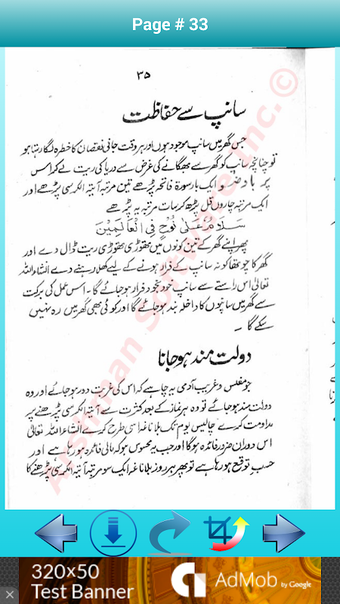 Page # 33
۳۵
سانپ سے حفاظت
جس گھر میں سانپ موجود ہوں اور ہر وقت جانی نقصان کا خطرہ لگا رہتا ہو
تو چنانچہ سانپ کو گھر سے بھگانے کی غرض سے دریا کی ریت لے کر اس
پر باوضو ایک بار سورۃ فاتحہ پڑھے تین مرتبہ آیتہ الکرسی پڑھے اور
ایک مرتبہ چاروں قل پڑھ کر سات مرتبہ یہ پڑھے
سَلَامٌ عَلٰی نُوْحٍ فِی الْعَالَمِیْنَ
پھر اپنے گھر کے تین کونوں میں تھوڑی تھوڑی ریت ڈال دے اور
گھر کا چوتھا کونہ سانپ کے فرار ہونے کے لیے کھلا رہنے دے انشاء اللہ
تعالیٰ اس راستے سے سانپ خود بخود فرار ہو جائے گا۔ اس عمل کی برکت
سے گھر میں سانپوں کا داخلہ بند ہو جائے گا اور کوئی بھی گھر میں رہ نہیں
سکے گا۔
دولت مند ہو جانا
جو مفلس و غریب آدمی یہ چاہے کہ اس کی غربت دور ہو جائے اور وہ
دولت مند ہو جائے تو وہ ہر نماز کے بعد کثرت سے آیتہ الکرسی پڑھنے پر
مداومت کرے چالیس یوم تک بلا ناغہ اسی طرح کرے انشاء اللہ تعالیٰ
اس دوران ضرور فائدہ ہوگا اور جب یہ محسوس ہو کہ مالی فائدہ ہو رہا ہے اور
حسب توقع ہو رہا ہے تو پھر ہر روز بلا ناغہ ایک سو مرتبہ آیتہ الکرسی پڑھنے کا
Aslman Software Inc. ©
320x50
Test Banner
AdMob by Google